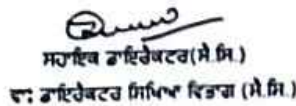 ਸਹਾਇਕ ਡਾਇਰੈਕਟਰ(ਸੈ.ਸਿ.)
ਵਾ: ਡਾਇਰੈਕਟਰ ਸਿੱਖਿਆ ਵਿਭਾਗ (ਸੈ.ਸਿ.)